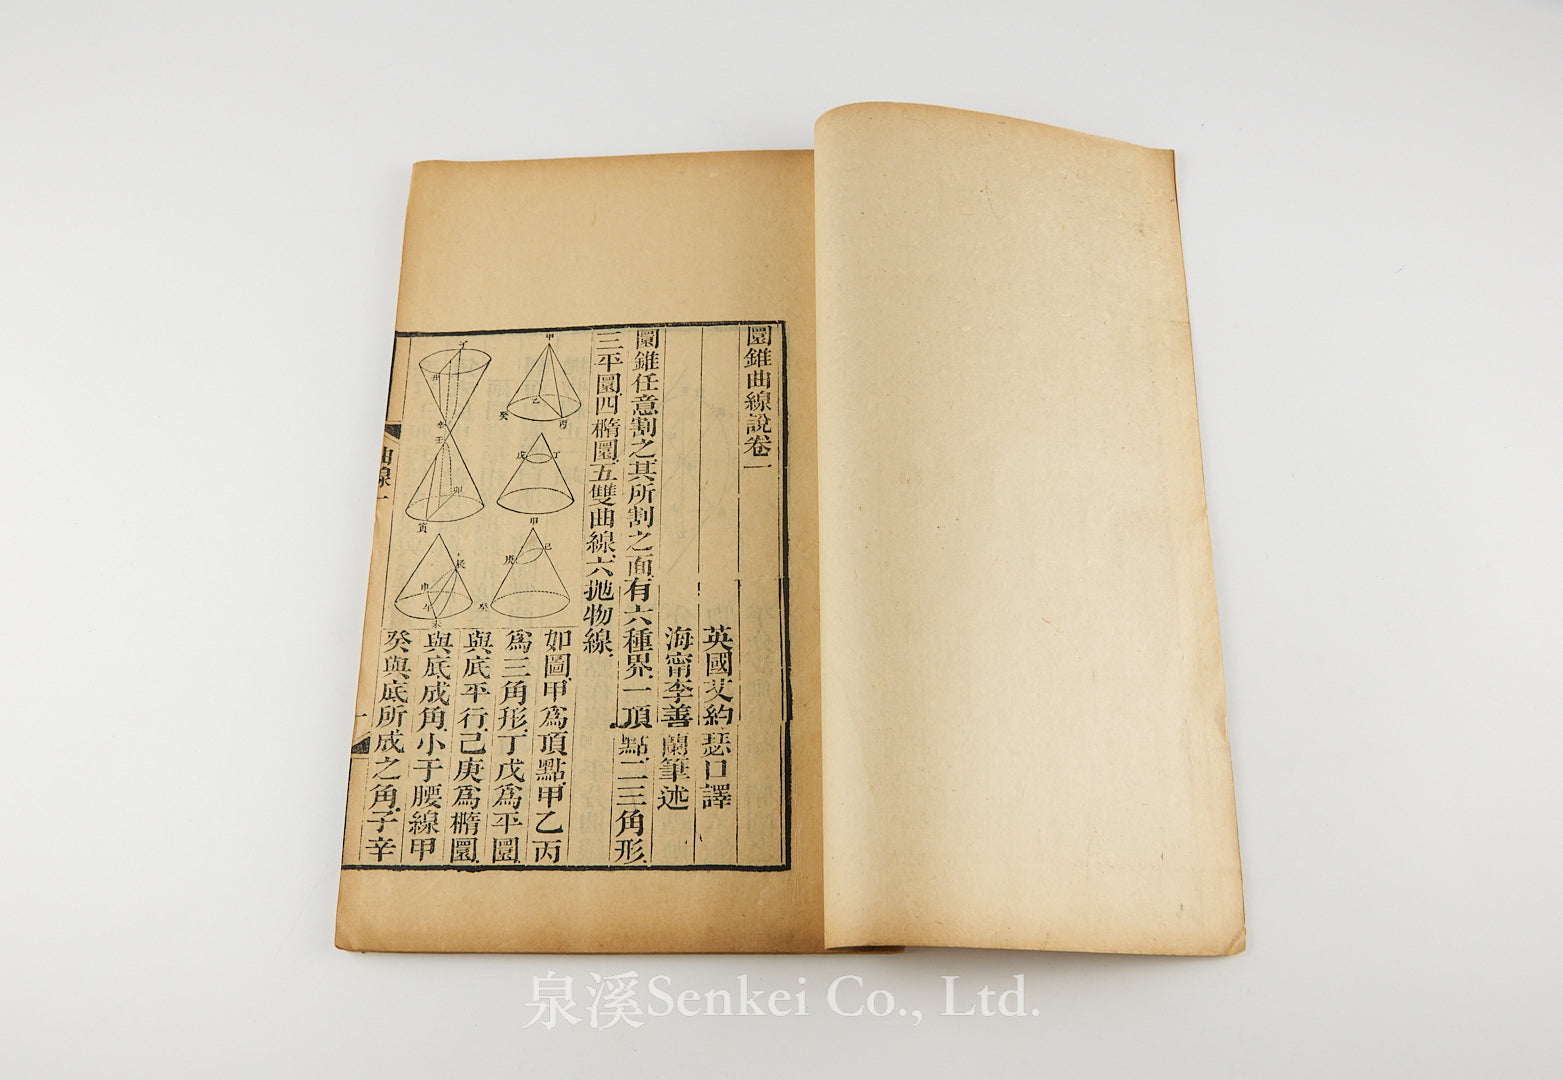 圜錐曲線說卷一
英國艾約瑟口譯
海甯李善蘭筆述
圜錐任意割之其所割之面有六種界一頂點二三角形
三平圜四橢圜五雙曲線六拋物線
如圖甲爲頂點甲乙丙
爲三角形丁戊爲平圜
與底平行己庚爲橢圜
與底成角小于腰線甲
癸與底所成之角子辛
甲
乙
丙
癸
戊
丁
甲
己
庚
癸
丁
丑
辛
壬
卯
寅
辰
申
午
未
曲線一
一
泉溪Senkei Co., Ltd.